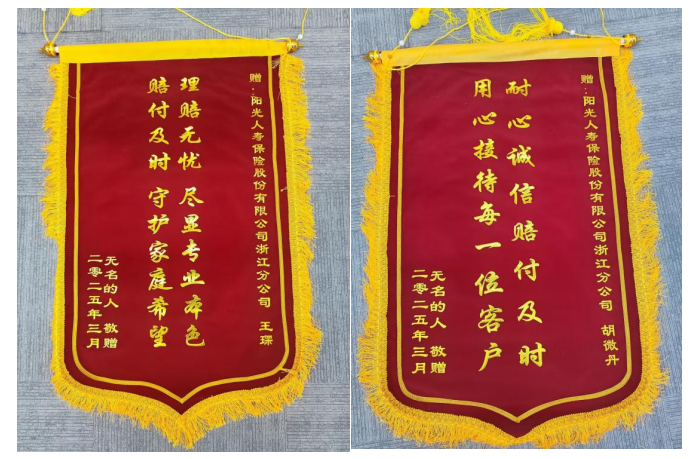 赠：阳光人寿保险股份有限公司浙江分公司 王琛
理赔无忧 尽显专业本色
赔付及时 守护家庭希望
无名的人 敬赠
二零二五年三月
赠：阳光人寿保险股份有限公司浙江分公司 胡微丹
耐心诚信赔付及时
用心接待每一位客户
无名的人 敬赠
二零二五年三月